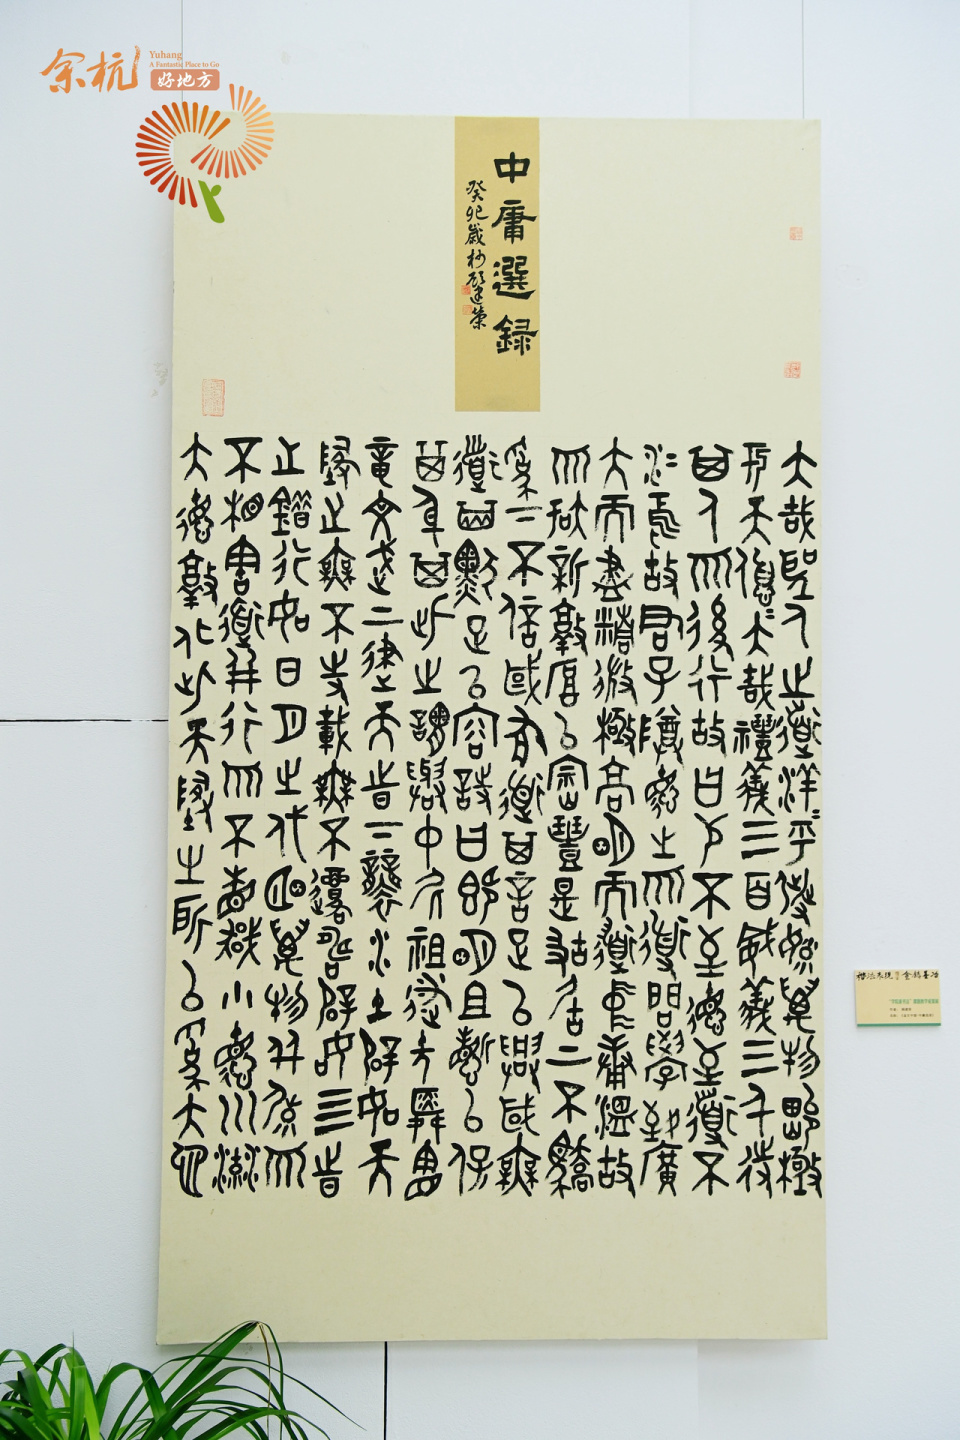 余杭
Yuhang
A Fantastic Place to Go
好地方
中庸選録
癸卯歲杪
大哉聖人之道洋=乎發育萬物峻極
于天優=大哉禮儀三百威儀三千待
其人而後行故曰苟不至德至道不
凝焉故君子尊德性而道問學致廣
大而盡精微極高明而道中庸溫故
而知新敦厚以崇禮是故居上不驕
為下不倍國有道其言足以興國無
道其默足以容詩曰既明且哲以保
其身其此之謂與中尼祖述堯舜憲
章文武上律天時下襲水土辟如天
地之無不持載無不覆幬辟如四時
之錯行如日月之代明萬物并育而
不相害道并行而不相悖小德川流
大德敦化此天地之所以為大也